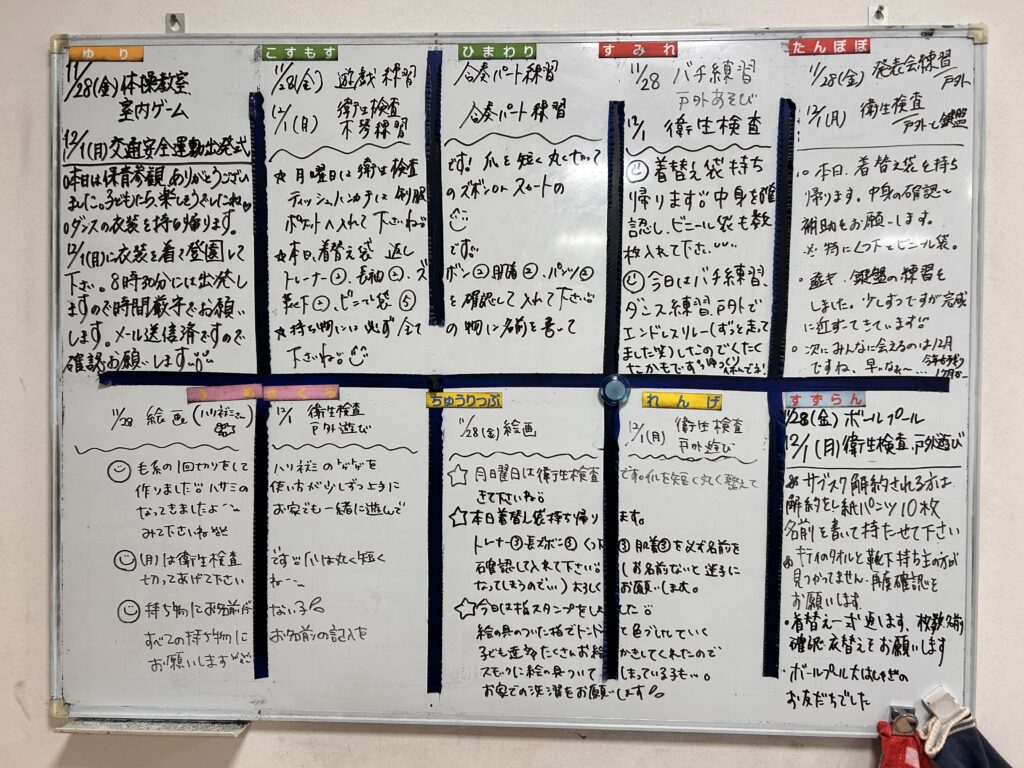 ゆり
11/28(金)体操教室
室内ゲーム
12/1(月)交通安全運動出発式
○本日は保育参観、ありがとうござい
ました。子どもたち、楽しそうでしたね
○ダンスの衣装を持ち帰ります。
12/1(月)に衣装を着て登園して
下さい。8時30分には出発し
ますので時間厳守でお願い
します。メール送信済ですので
確認お願いします。
こすもす
11/28(金) 遊戯練習
12/1(月) 衛生検査
練習
☆月曜日は衛生検査
ティッシュハンカチは制服
ポケットへ入れて下さいね
☆本日、着替え袋 返し
トレーナー②、長袖②、ズ
靴下②、ビニール袋⑤
☆持ち物には必ず全て
下さいね
ひまわり
合奏パート練習
合奏パート練習
です! 爪を短く丸く切って
のズボンor スカートの
です。
ボン②肌着②、パンツ②
を確認して入れて下さい
の物に名前を書いて
すみれ
11/28 バチ練習
戸外あそび
12/1 衛生検査
着替え袋持ち
帰ります。中身を確
認し、ビニール袋も数
枚入れて下さい
今日はバチ練習、
ダンス練習、戸外で
エンドレスリレー(ずっと走って
ました笑)したのでくたくた
かもです
たんぽぽ
11/28(金) 発表会練習
戸外
12/1(月) 衛生検査
戸外と鍵盤
○本日、着替え袋を持ち
帰ります。中身の確認と
補助をお願いします。
※特にくつ下とビニール袋。
・遊ぎ、鍵盤の練習を
しました。少しずつですが完成
に近ずいてきています
○次にみんなに会えるのは12月
ですね、早いなぁ〜
うめ
さくら
11/28 絵画(ハリネズミさん
完了)
毛糸の1回切りをして
作りました ハサミの
なってきましたよ
みて下さいね
(月)は衛生検査
切ってあげて下さい
持ち物にお名前が
すべての持ち物に
お願いします
12/1 衛生検査
戸外遊び
ハリネズミの
使い方が少しずつ上手に
お家でも一緒に遊んで
です 爪は丸く短く
ね〜
ない子
お名前の記入を
ちゅうりっぷ
11/28(金)絵画
☆月曜日は衛生検査
きて下さいね
☆本日着替え袋持ち帰り
トレーナー③長ズボン③くつ下
確認して入れて下さい
なってしまうので…)よろしく
☆今日は指スタンプをし
絵の具のついた指でトントン
子ども達がたくさんお絵
スモックに絵の具がついて
お家での洗濯をお願いします
れんげ
12/1(月) 衛生検査
戸外遊び
です。爪を短く丸く整えて
ます。
③肌着③を必ず名前を
(お名前ないと迷子に
お願いします。
ました
と色づけしていく
かきしてくれたので
しまっている子も…。
すずらん
11/28(金) ボールプール
12/1(月)衛生検査、戸外遊び
サブスク解約される方は
解約をし紙パンツ10枚
名前を書いて持たせて下さい
のタオルと靴下持ち主の方が
見つかってません。再度確認を
お願いします
・着替え一式返します。枚数、名前
確認、衣替えもお願いします
・ボールプール大はしゃぎの
お友だちでした